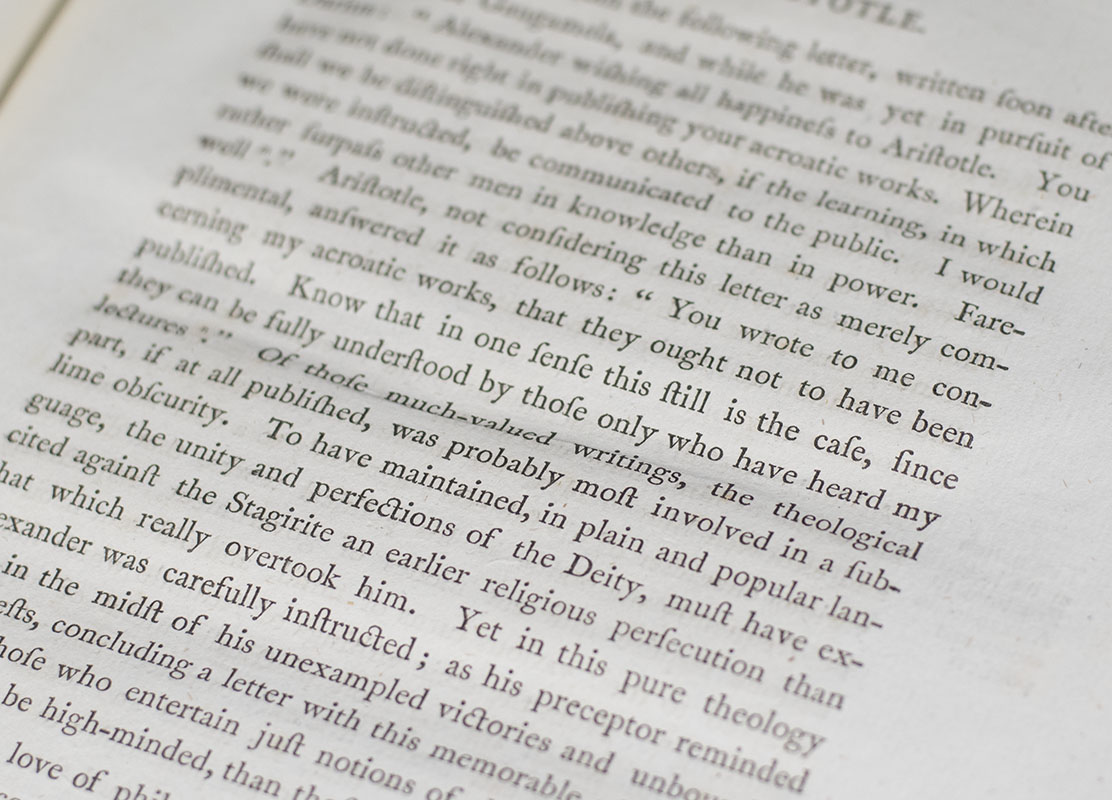 OTLE.
the following letter, written ſoon after
Gaugamela, and while he was yet in purſuit of
Darius: “ Alexander wiſhing all happineſs to Ariſtotle. You
have not done right in publiſhing your acroatic works. Wherein
ſhall we be diſtinguiſhed above others, if the learning, in which
we were inſtructed, be communicated to the public. I would
rather ſurpaſs other men in knowledge than in power. Fare-
well .” Ariſtotle, not conſidering this letter as merely com-
plimental, anſwered it as follows: “ You wrote to me con-
cerning my acroatic works, that they ought not to have been
publiſhed. Know that in one ſenſe this ſtill is the caſe, ſince
they can be fully underſtood by thoſe only who have heard my
lectures .” Of thoſe much-valued writings, the theological
part, if at all publiſhed, was probably moſt involved in a ſub-
lime obſcurity. To have maintained, in plain and popular lan-
guage, the unity and perfections of the Deity, muſt have ex-
cited againſt the Stagirite an earlier religious perſecution than
hat which really overtook him. Yet in this pure theology
exander was carefully inſtructed; as his preceptor reminded
in the midſt of his unexampled victories and unbou
eſts, concluding a letter with this memorable
hoſe who entertain juſt notions of
be high-minded, than
love of phil